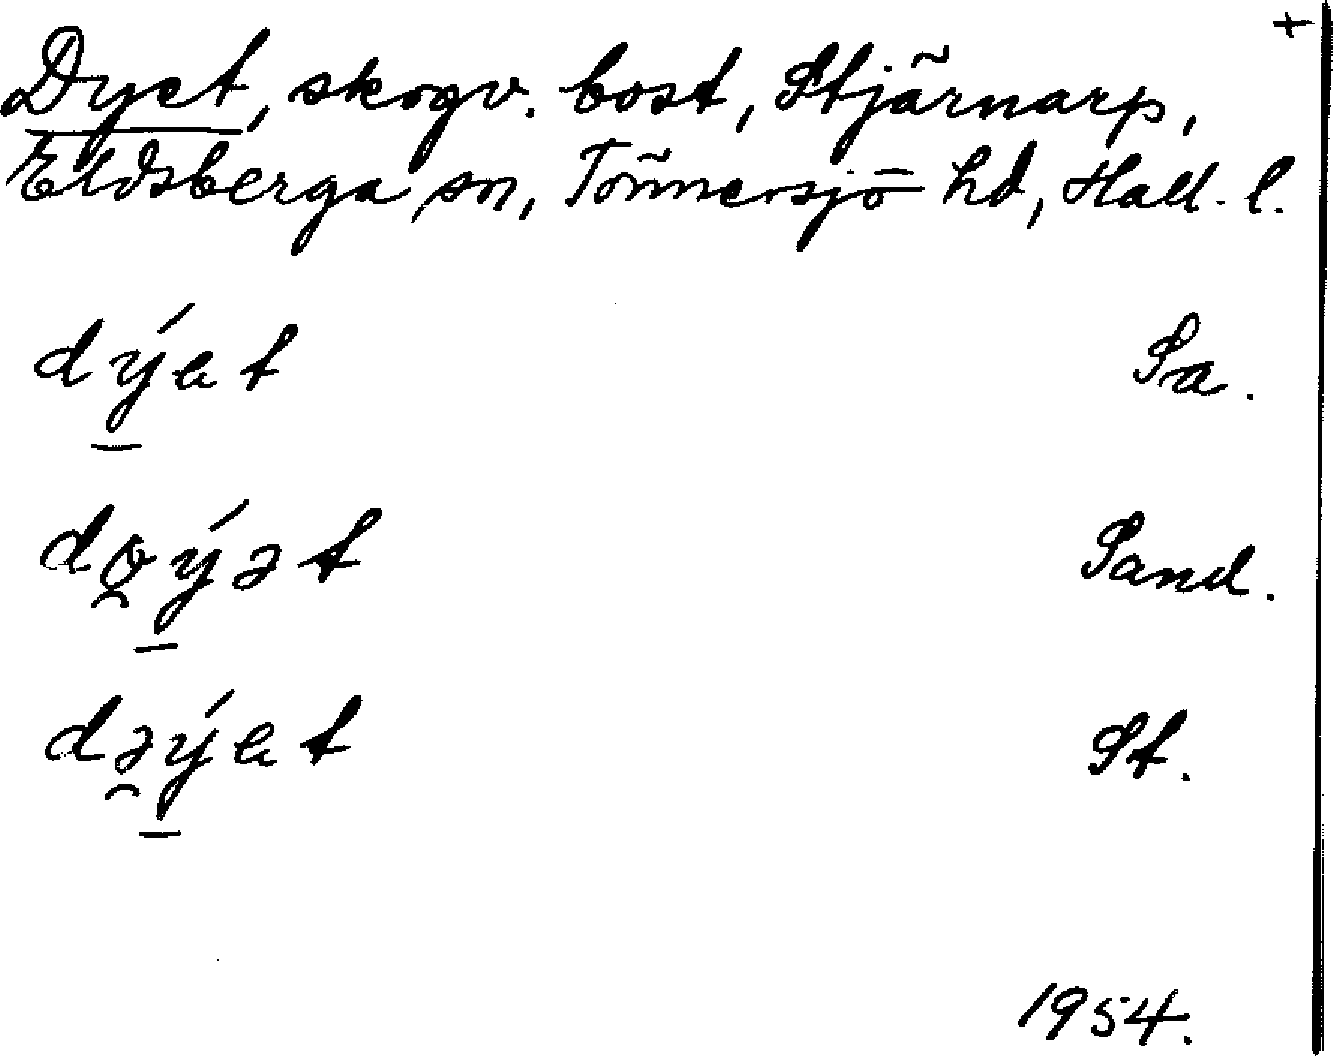 +
Dyet, skogv. bost, Stjärnarp,
Eldsberga sn, Tönnersjö hd, Hall. l.
dýet Sa.
do̯ýət Sand.
də̯ýet St.
1954.